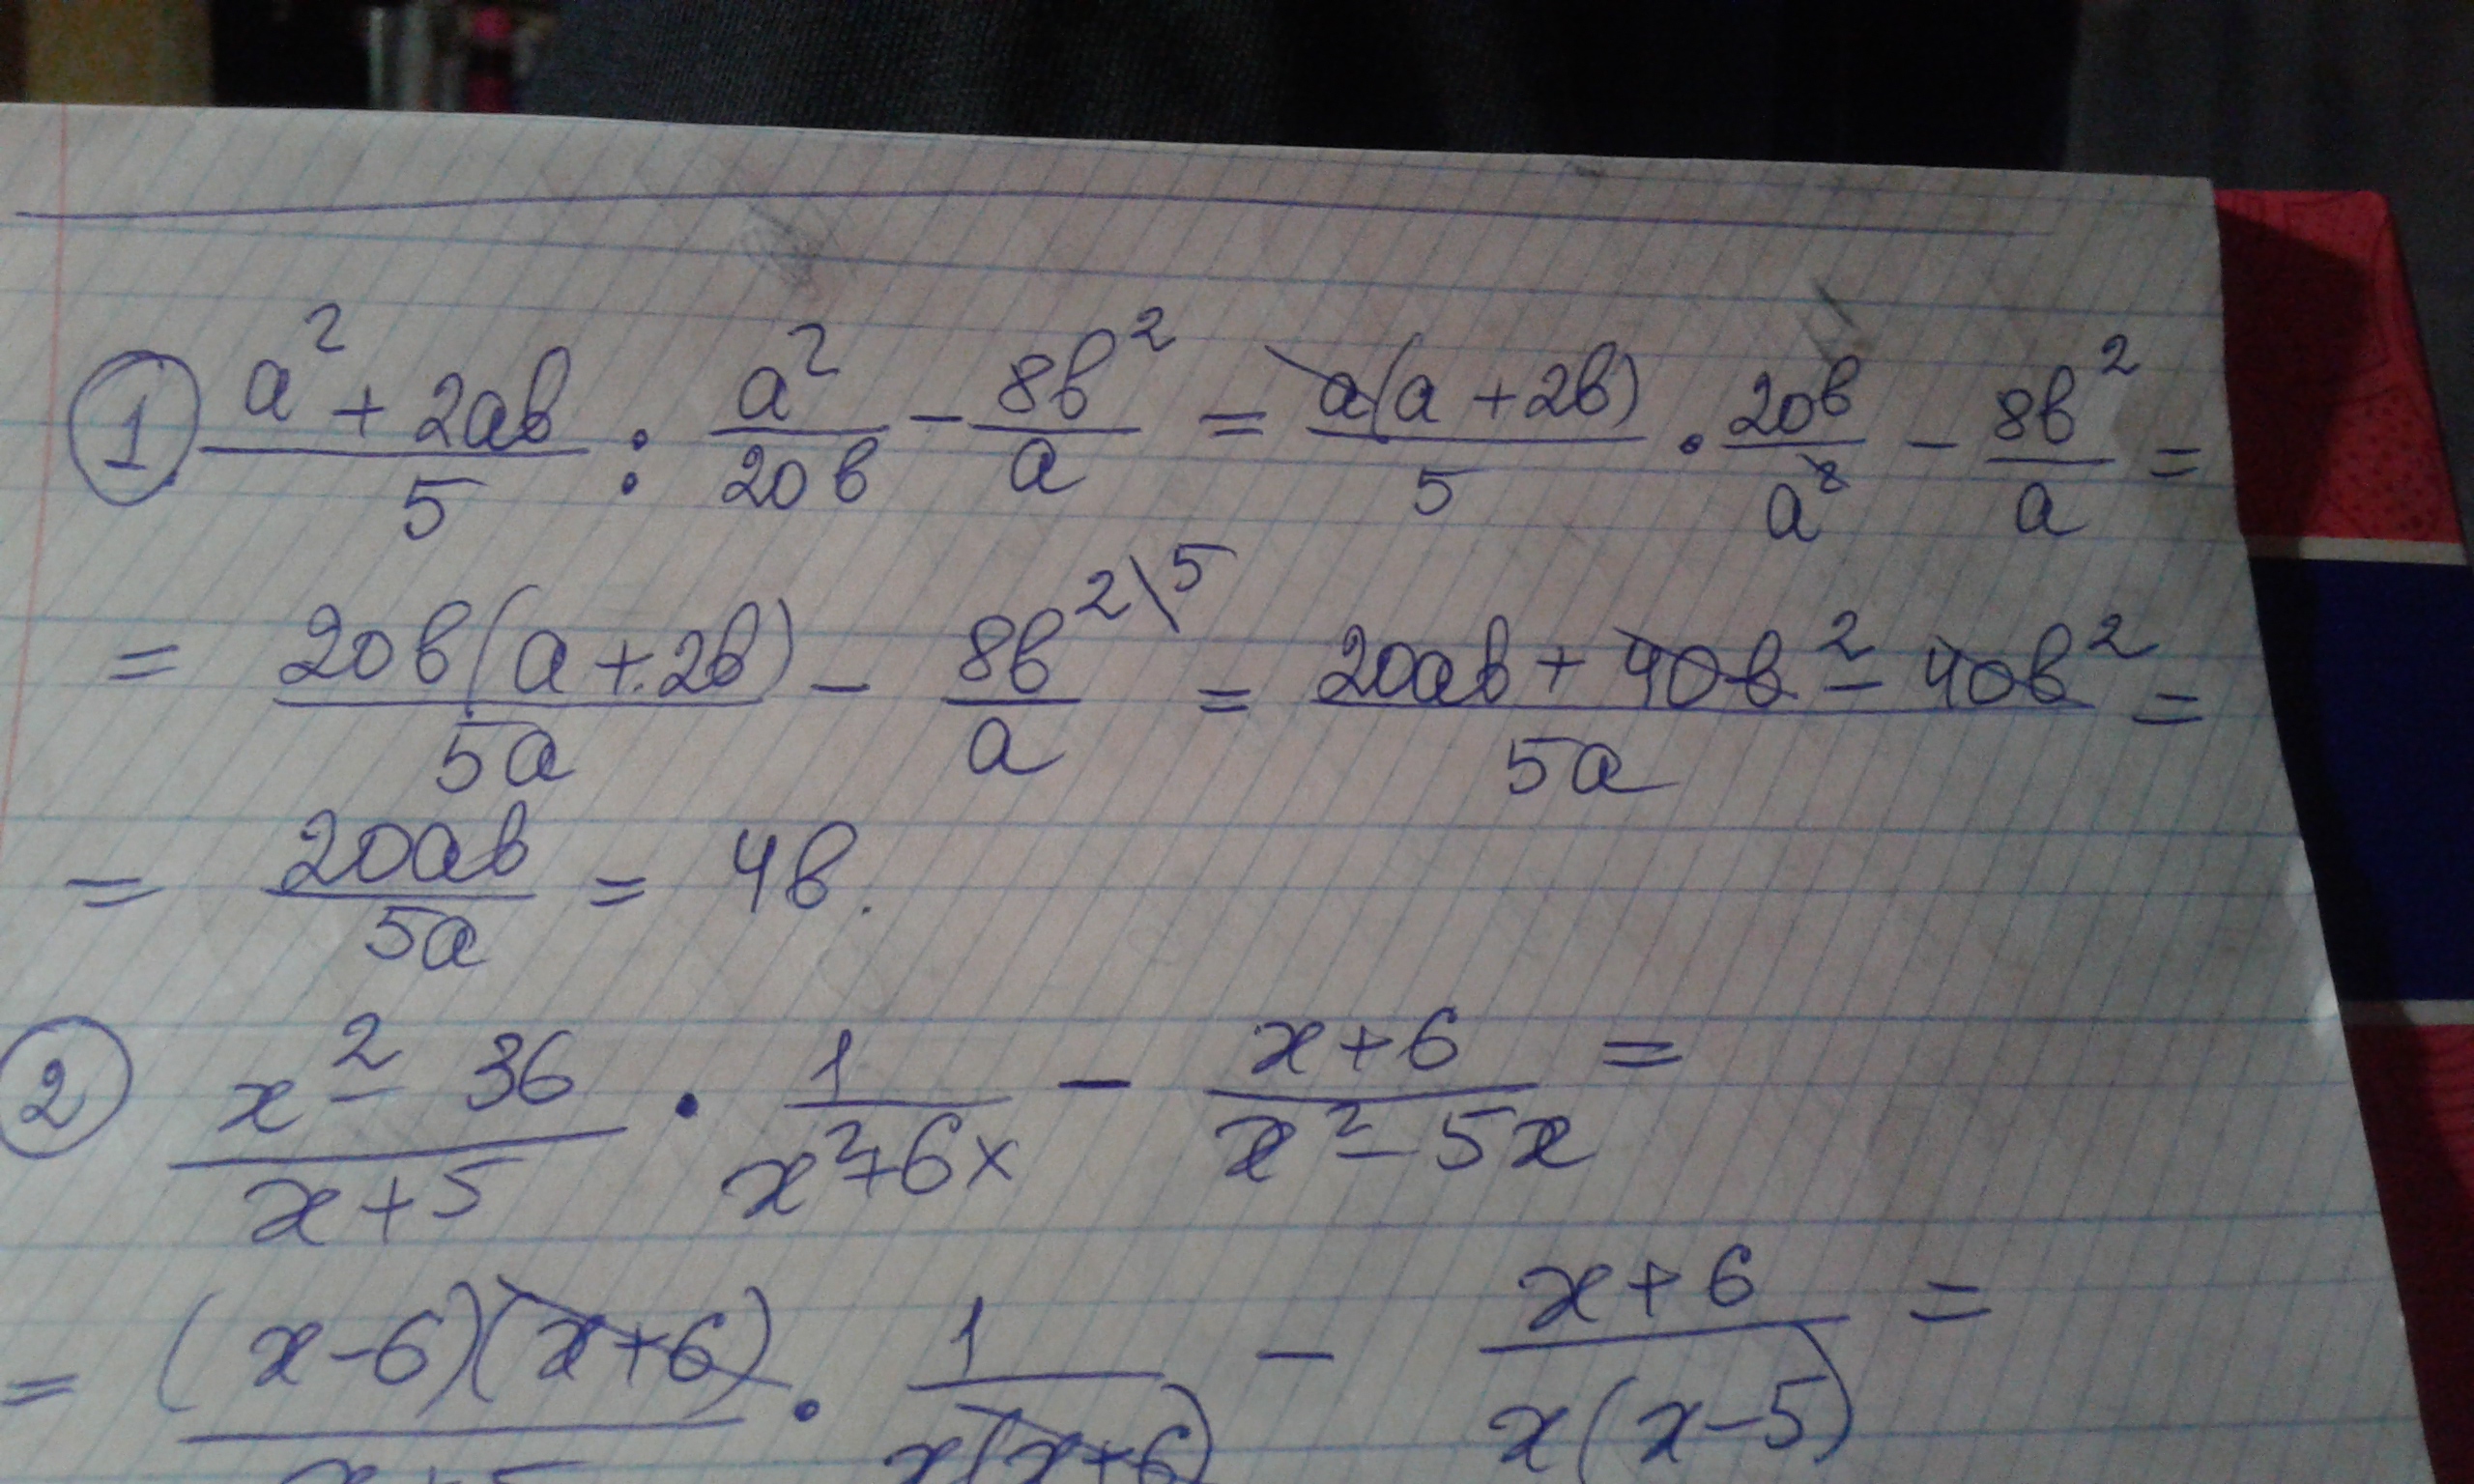 ① (a² + 2ab)/5 : a²/(20b) − 8b²/a = a(a + 2b)/5 · 20b/a² − 8b²/a =
= 20b(a + 2b)/(5a) − 8b²\5/a = (20ab + 40b² − 40b²)/(5a) =
= 20ab/(5a) = 4b.
② (x² − 36)/(x + 5) · 1/(x² + 6x) − (x + 6)/(x² − 5x) =
= (x − 6)(x + 6)/(x + 5) · 1/(x(x + 6)) − (x + 6)/(x(x − 5)) =